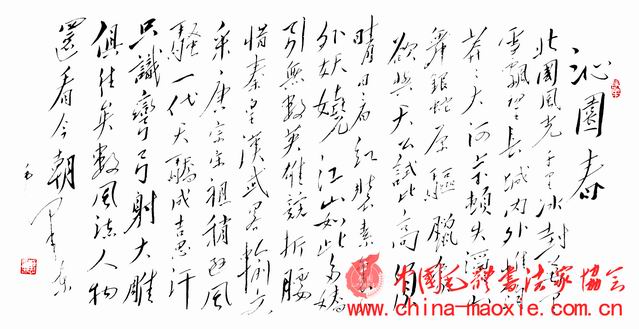 沁園春
北國風光千里冰封萬里
雪飄望長城内外惟餘
莽々大河
頓失滔々
舞銀蛇原驅臘象
欲與天公試比高須
晴日看紅裝素裹
外妖嬈江山如此多嬌
引無數英雄競折腰
惜秦皇漢武略輸文
采唐宗宋祖稍遜風
騷一代天驕成吉思汗
只識彎弓射大雕
俱往矣數風流人物
還看今朝
毛澤東
中國毛體書法家協會
www.china-maoxie.com